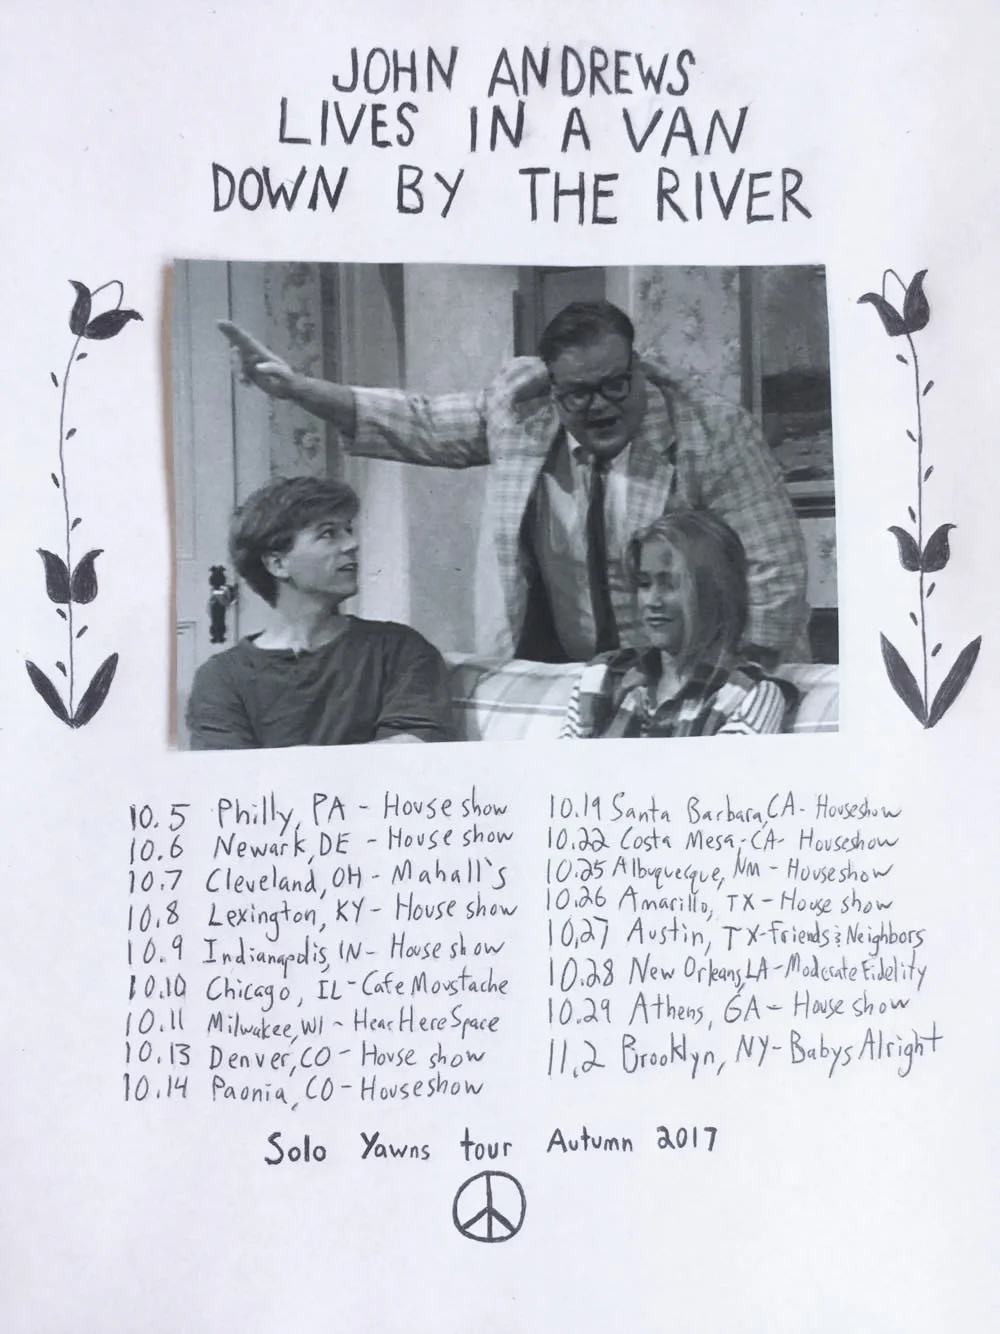 JOHN ANDREWS
LIVES IN A VAN
DOWN BY THE RIVER
10.5 Philly, PA - House show
10.6 Newark, DE - House show
10.7 Cleveland, OH - Mahall's
10.8 Lexington, KY - House show
10.9 Indianapolis, IN - House show
10.10 Chicago, IL - Cafe Movstache
10.11 Milwukee, WI - Hear Here Space
10.13 Denver, CO - House show
10.14 Paonia, CO - Houseshow
10.19 Santa Barbara, CA - Houseshow
10.22 Costa Mesa, CA - Houseshow
10.25 Albuquerque, NM - Houseshow
10.26 Amarillo, TX - House show
10.27 Austin, TX - Friends & Neighbors
10.28 New Orleans, LA - Moderate Fidelity
10.29 Athens, GA - House show
11.2 Brooklyn, NY - Babys Alright
Solo Yawns tour Autumn 2017